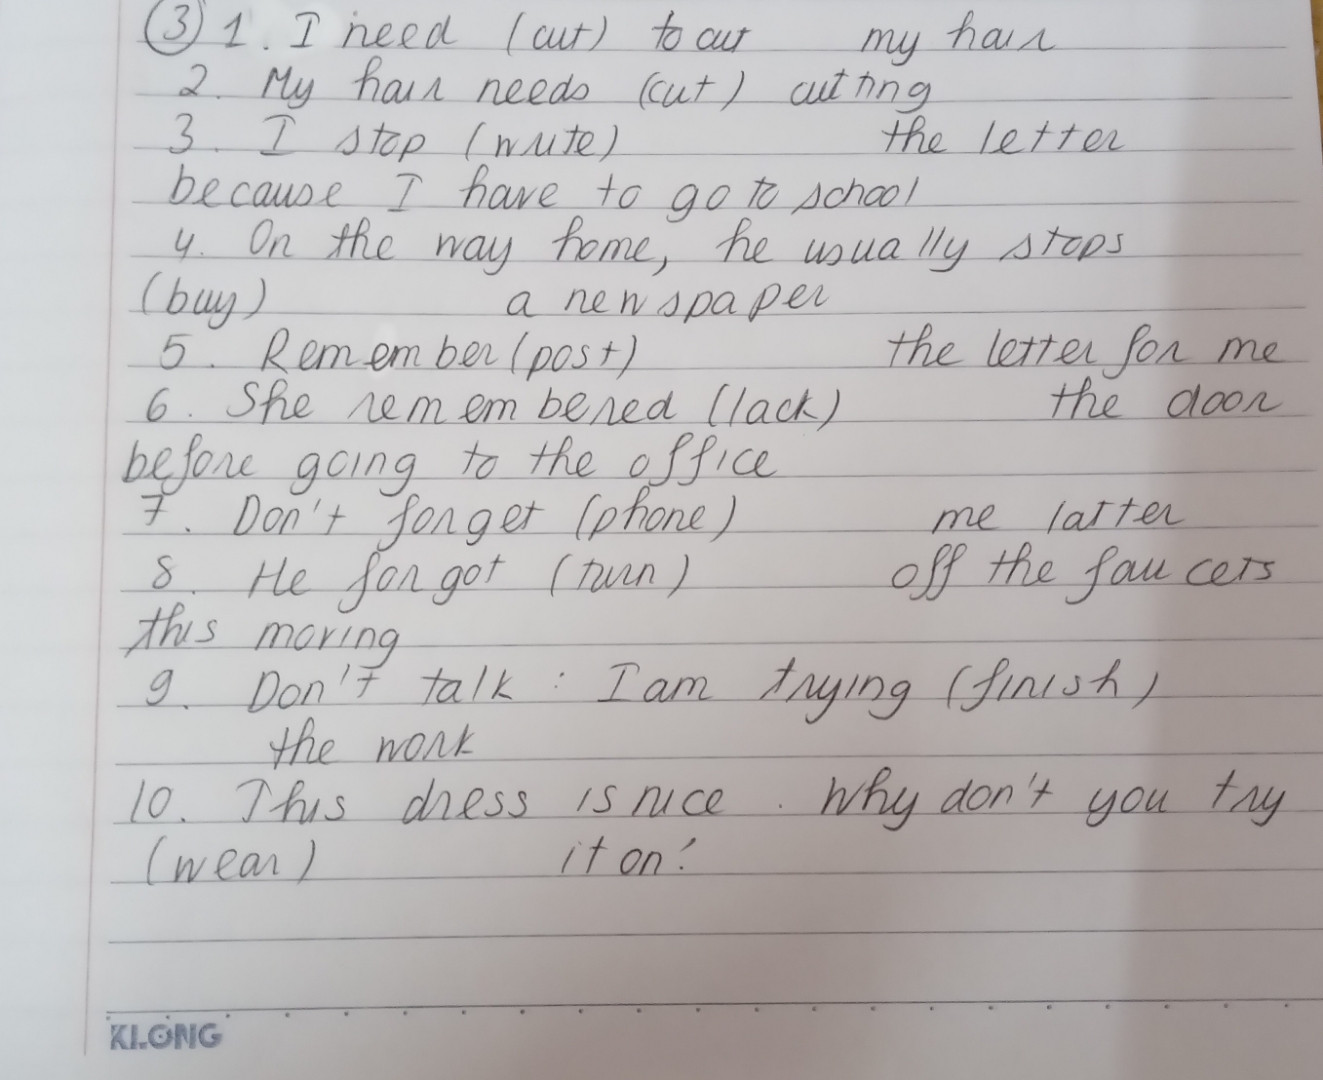 ③ 1. I need (cut) to cut my hair
2. My hair needs (cut) cutting
3. I stop (write) the letter
because I have to go to school
4. On the way home, he usually stops
(buy) a newspaper
5. Remember (post) the letter for me
6. She remembered (lack) the door
before going to the office
7. Don't forget (phone) me latter
8. He forgot (turn) off the faucets
this moring
9. Don't talk : I am trying (finish)
the work
10. This dress is nice . Why don't you try
(wear) it on?
KLONG